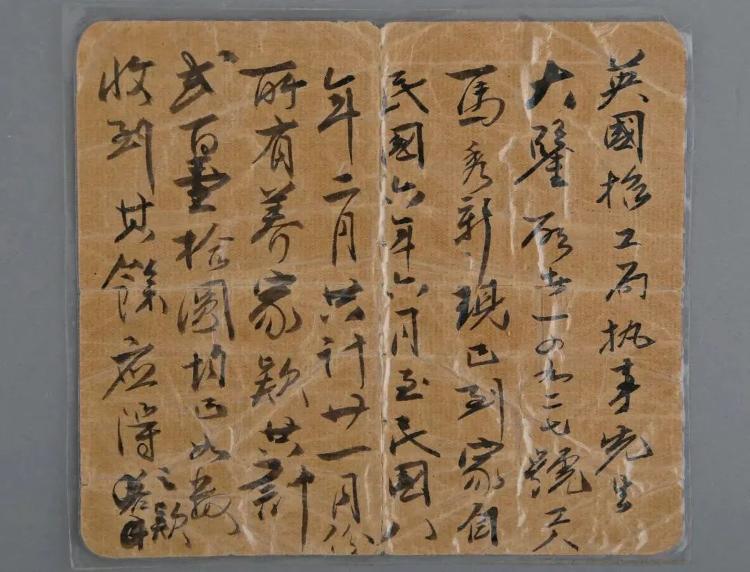 英國招工局执事先生
大鑒 啟者一四九二七號工人
馬秀新現已到家自
民國六年六月至民國八
年二月共计廿一月份
所有养家欵共計
弍百壹拾圓均已如数
收到其餘应得之欵